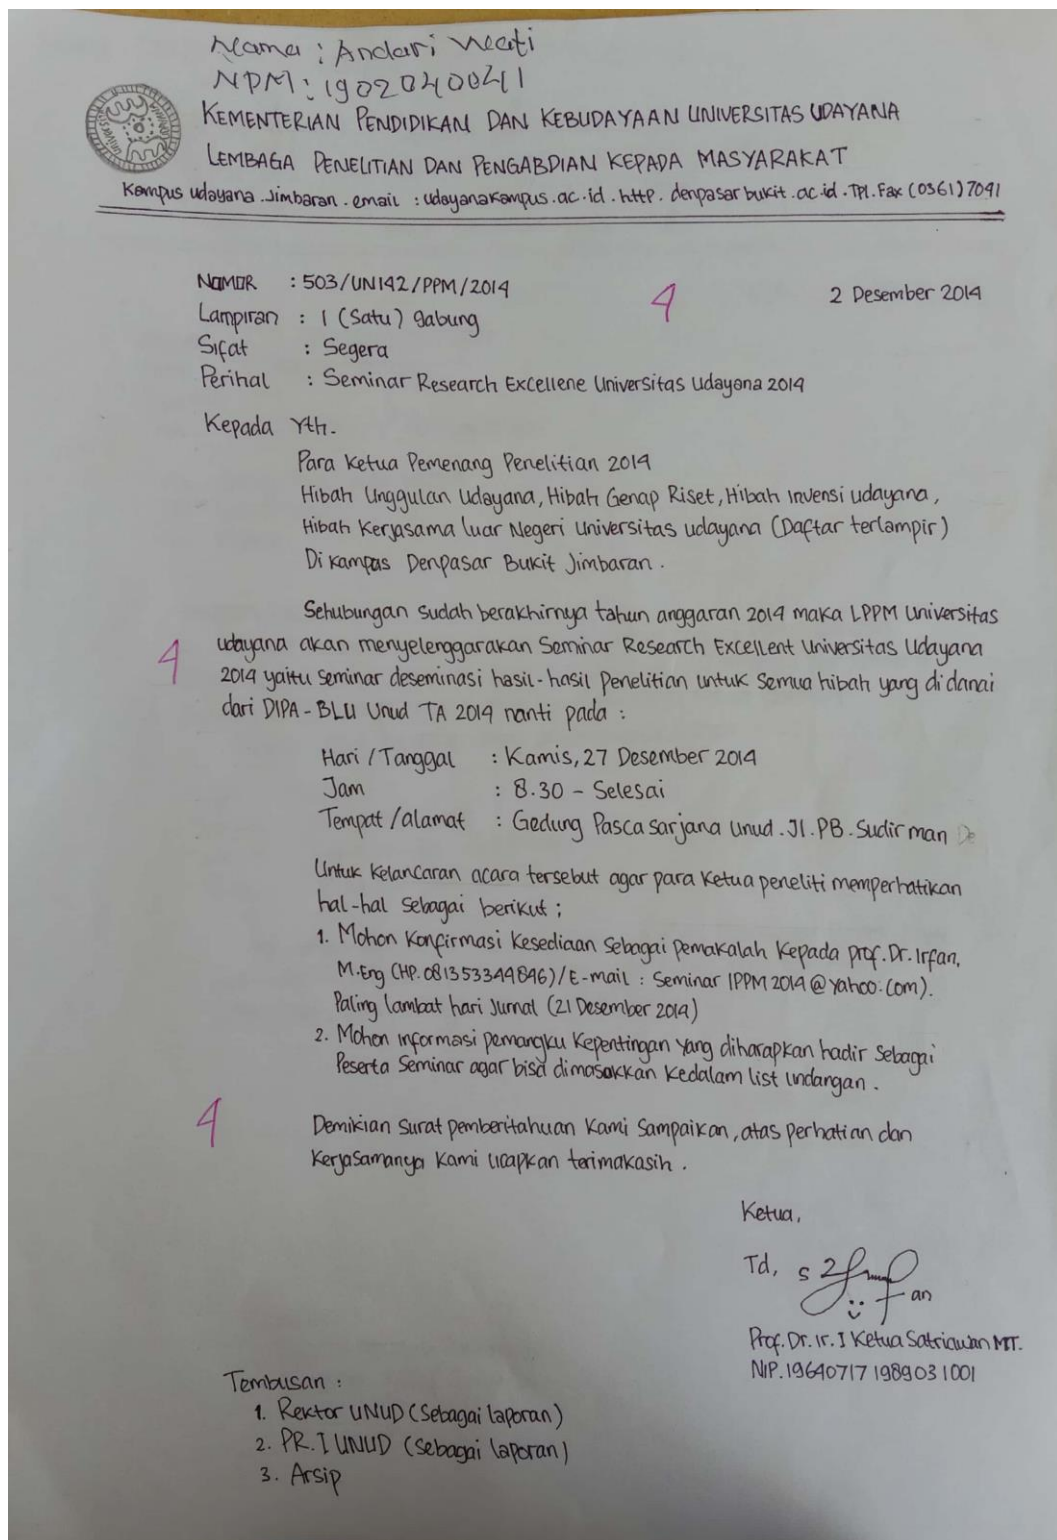 Nama : Andari Wati
NPM : 1902040041
KEMENTERIAN PENDIDIKAN DAN KEBUDAYAAN UNIVERSITAS UDAYANA
LEMBAGA PENELITIAN DAN PENGABDIAN KEPADA MASYARAKAT
Kampus Udayana . Jimbaran . email : udayanakampus.ac.id . http . denpasar bukit .ac.id . Tpl. Fax (0361) 7041
NOMOR : 503/UN142/PPM/2014
4
2 Desember 2014
Lampiran : 1 (Satu) gabung
Sifat : Segera
Perihal : Seminar Research Excellene Universitas Udayana 2014
Kepada Yth.
Para Ketua Pemenang Penelitian 2014
Hibah Unggulan Udayana, Hibah Genap Riset, Hibah Invensi udayana,
Hibah Kerjasama luar Negeri Universitas udayana (Daftar terlampir)
Di kampus Denpasar Bukit Jimbaran .
Sehubungan sudah berakhirnya tahun anggaran 2014 maka LPPM Universitas
4 udayana akan menyelenggarakan Seminar Research Excellent Universitas Udayana
2014 yaitu seminar deseminasi hasil-hasil penelitian untuk semua hibah yang di danai
dari DIPA - BLU Unud TA 2014 nanti pada :
Hari / Tanggal : Kamis, 27 Desember 2014
Jam : 8.30 - Selesai
Tempat / alamat : Gedung Pasca sarjana Unud . Jl . PB . Sudirman De
Untuk Kelancaran acara tersebut agar para Ketua peneliti memperhatikan
hal-hal sebagai berikut ;
1. Mohon Konfirmasi Kesediaan Sebagai pemakalah Kepada prof. Dr. Irfan,
M.Eng (HP. 081353344846) / E-mail : Seminar IPPM 2014 @ yahoo.com).
Paling lambat hari Jumat (21 Desember 2014)
2. Mohon informasi pemangku Kepentingan yang diharapkan hadir Sebagai
Peserta Seminar agar bisa dimasukkan Kedalam list undangan .
4
Demikian surat pemberitahuan Kami Sampaikan, atas perhatian dan
Kerjasamanya Kami ucapkan terimakasih .
Ketua,
Td,
Prof. Dr. Ir. I Ketua Satriawan MT.
NIP. 19640717 198903 1001
Tembusan :
1. Rektor UNUD (Sebagai laporan)
2. PR. I UNUD (Sebagai laporan)
3. Arsip